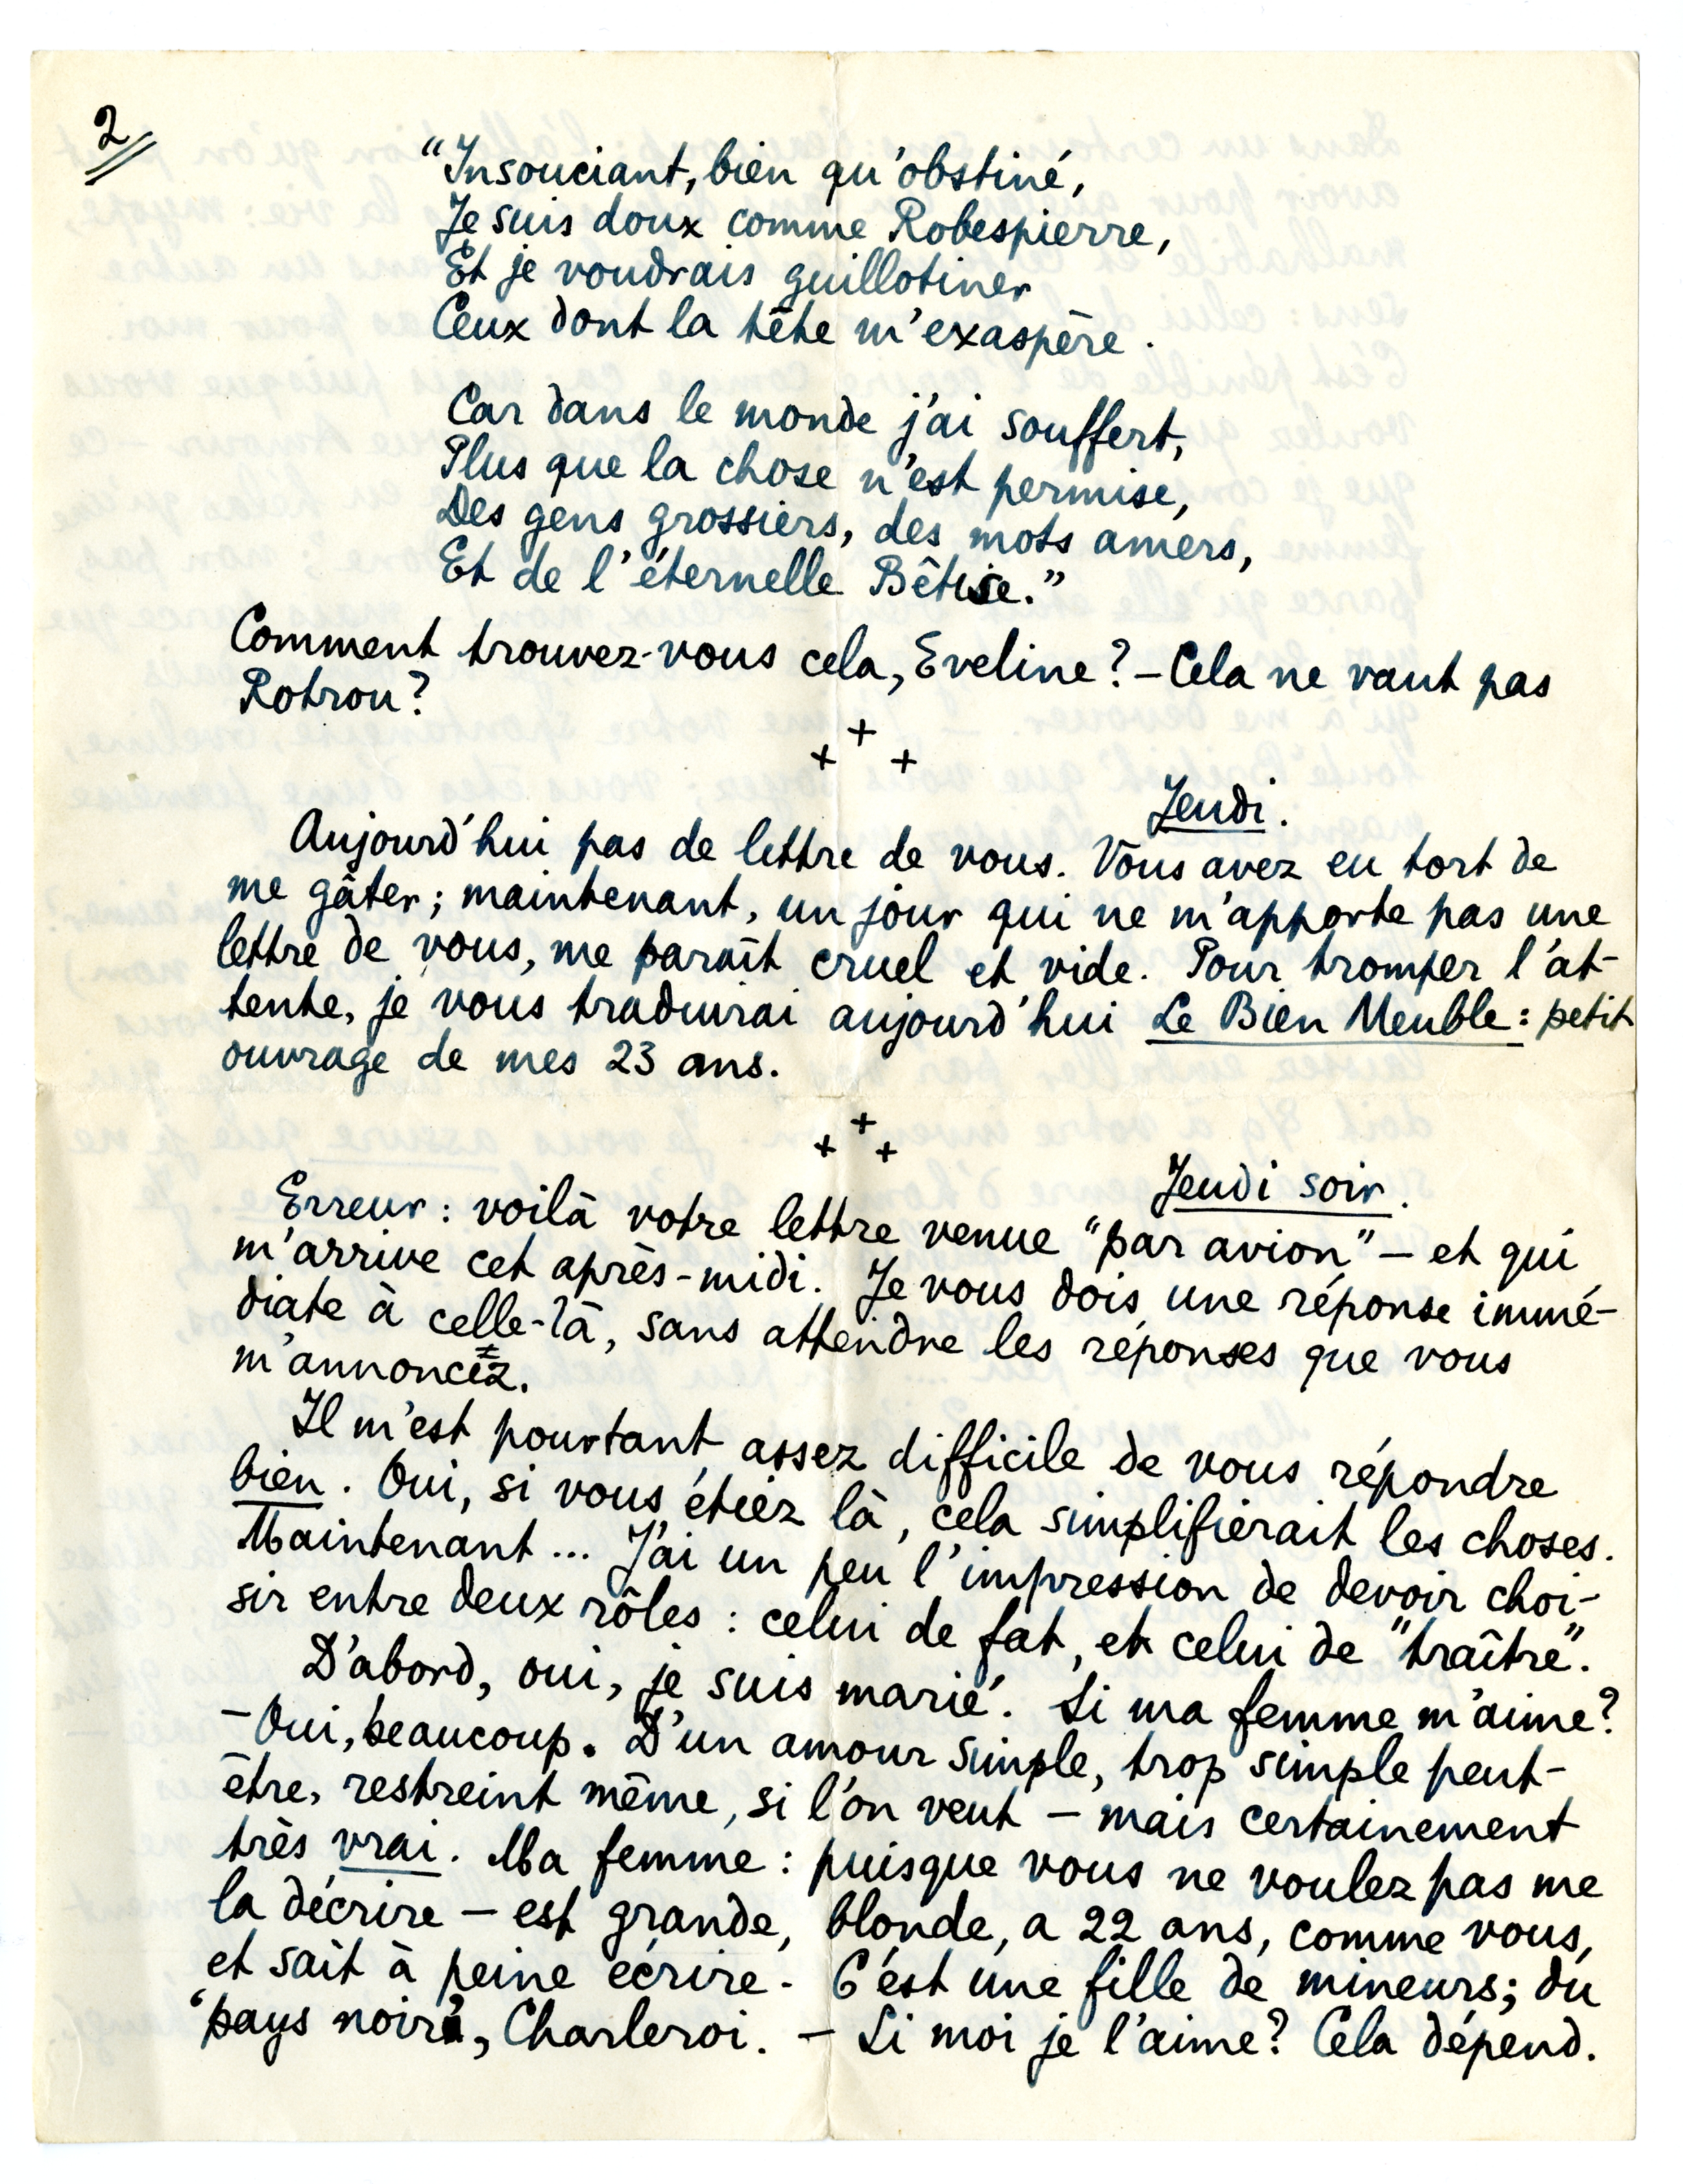 2
“Insouciant, bien qu'obstiné,
Je suis doux comme Robespierre,
Et je voudrais guillotiner
Ceux dont la tête m'exaspère.
Car dans le monde j'ai souffert,
Plus que la chose n'est permise,
Des gens grossiers, des mots amers,
Et de l'éternelle Bêtise.”
Comment trouvez-vous cela, Eveline? – Cela ne vaut pas
Rotrou?
+ + +
Jeudi.
Aujourd'hui pas de lettre de vous. Vous avez eu tort de
me gâter; maintenant, un jour qui ne m'apporte pas une
lettre de vous, me paraît cruel et vide. Pour tromper l'at-
tente, je vous traduirai aujourd'hui Le Bien Meuble: petit
ouvrage de mes 23 ans.
+ + +
Jeudi soir.
Erreur: voilà votre lettre venue “par avion” – et qui
m'arrive cet après-midi. Je vous dois une réponse immé-
diate à celle-là, sans attendre les réponses que vous
m'annoncez.
Il m'est pourtant assez difficile de vous répondre
bien. Oui, si vous étiez là, cela simplifierait les choses.
Maintenant... J'ai un peu l'impression de devoir choi-
sir entre deux rôles: celui de fat, et celui de “traître”.
D'abord, oui, je suis marié. Si ma femme m'aime?
– Oui, beaucoup. D'un amour simple, trop simple peut-
être, restreint même, si l'on veut – mais certainement
très vrai. Ma femme: puisque vous ne voulez pas me
la décrire – est grande, blonde, a 22 ans, comme vous,
et sait à peine écrire. C'est une fille de mineurs; du
“pays noir”, Charleroi. – Si moi je l'aime? Cela dépend.